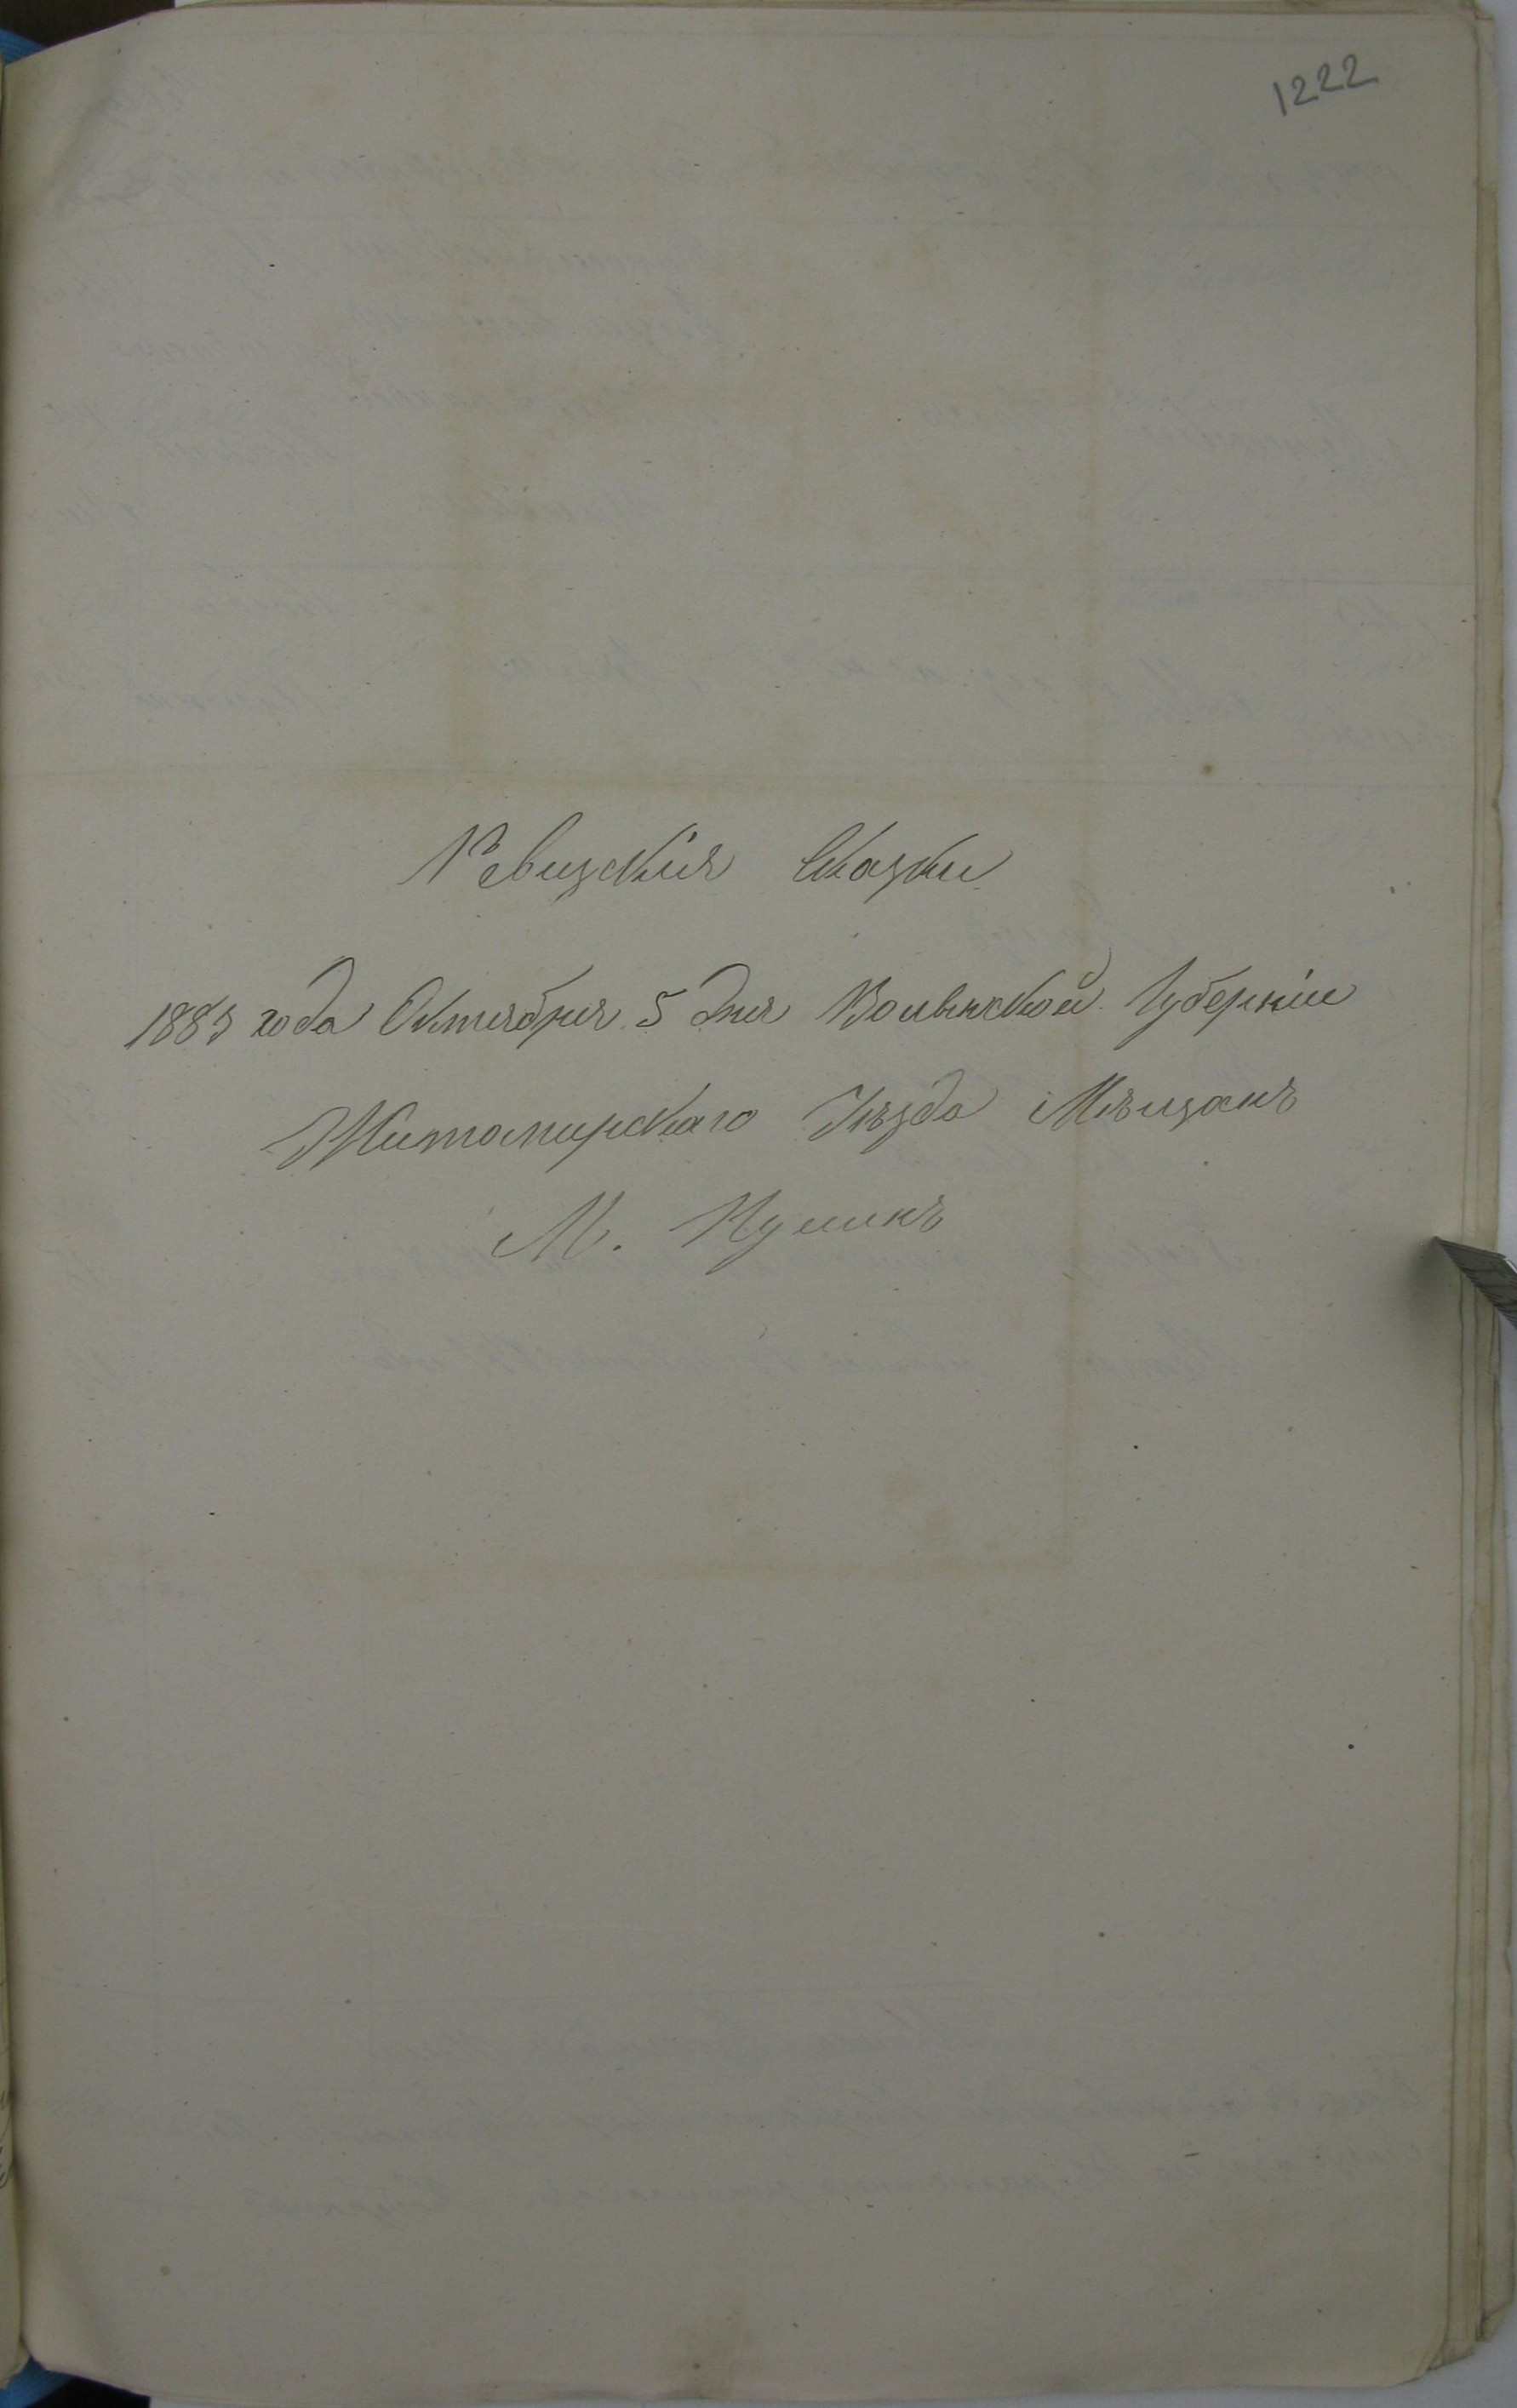 1222
Ревизскія Сказки
1883 года Октября 5 дня Волынской Губерніи
Житомирскаго Уѣзда Мѣщанъ
М. Пулинъ